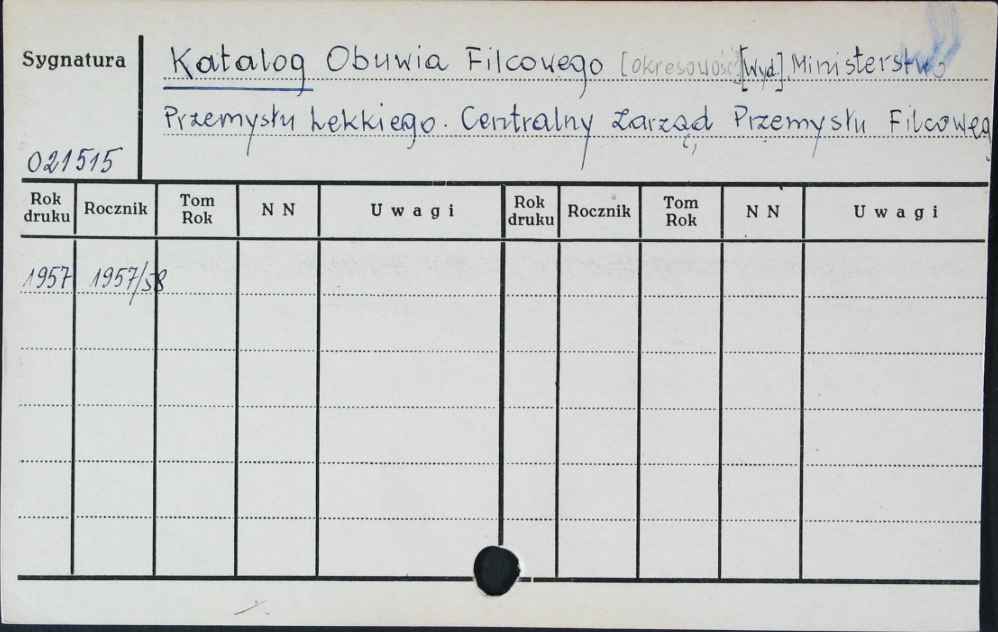 Sygnatura
Katalog Obuwia Filcowego [okresowość] [Wyd.] Ministerstwo
Przemysłu Lekkiego. Centralny Zarząd Przemysłu Filcoweg
021515
Rok druku Rocznik Tom Rok N N Uwagi Rok druku Rocznik Tom Rok N N Uwagi
1957 1957/58